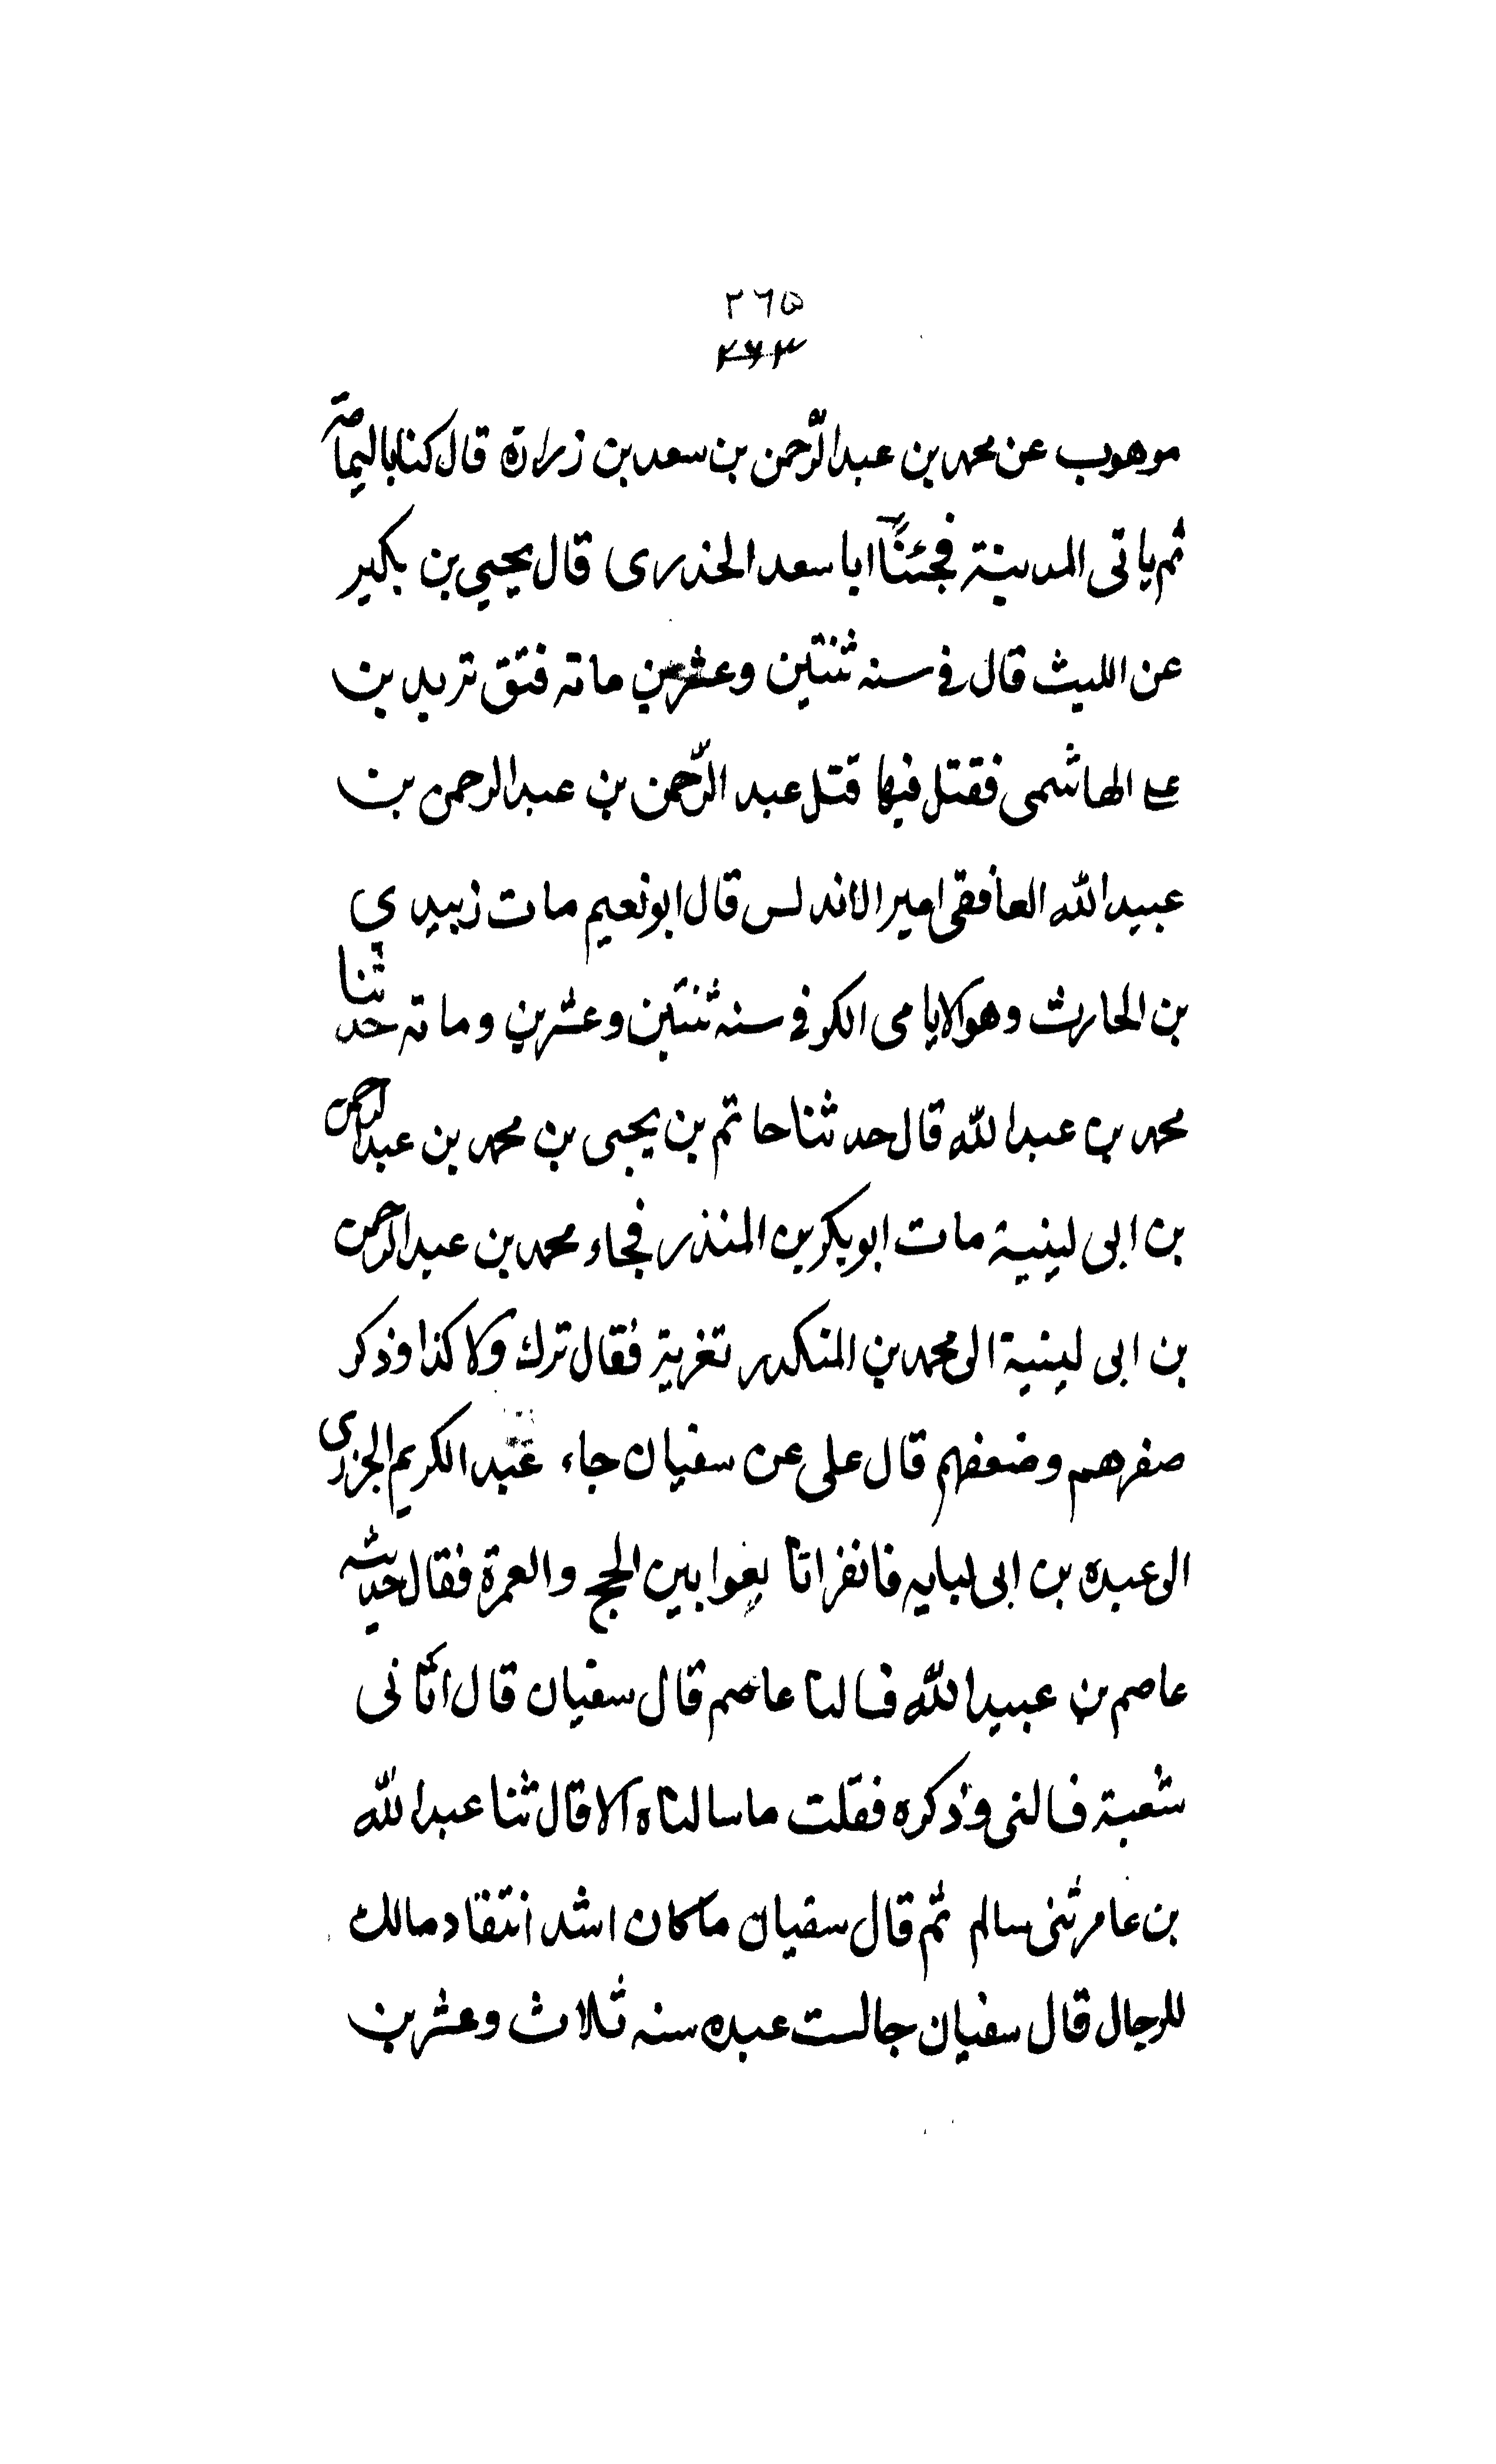 ٢٦٥
٢٦٣
موهوب عن محمد بن عبد الرّحمن بن سعد بن زرارة قال كنا باليمامة
ثم ياتى المدينة فجئنا ابا سعد الخذرى قال يحيي بن بكير
عن الليث قال في سنه ثنتين وعشرين ماته فتق تريد بن
علے الهاشمى فقتل فيها قتل عبد الرّحمن بن عبد الرحمن بن
عبيد الله العافقى امير الاندلس قال ابو نعيم مات زبيدي
بن الحارث وهو الايامى الكوفي سنه ثنتين وعشرين وماته حدثنا
محمد بن عبد الله قال حدثنا حاتم بن يحيى بن محمد بن عبد الرحمن
بن ابى لينية مات ابو بكر بن المنذر فجاء محمد بن عبد الرحمن
بن ابى لينية الى محمد بن المنكدر تغرية فقال ترك ولا كذا وذكر
صفرهم وضعفهم قال على عن سفيان جاء عبد الكريم الجزرى
الى عبده بن ابى لبايه فانفراتا بغوا بين الحج والعمرة فقال حديثه
عاصم بن عبيد الله فسالنا عاصم قال سفيان قال اتانى
شعبة فسالنى وذكره فقلت ما سالناه الا قال ثنا عبد الله
بن عامر ثنى سالم ثم قال سفيان ما كان اشد انتقاد مالك
للرجال قال سفيان جالست عبده سنه ثلاث وعشرين